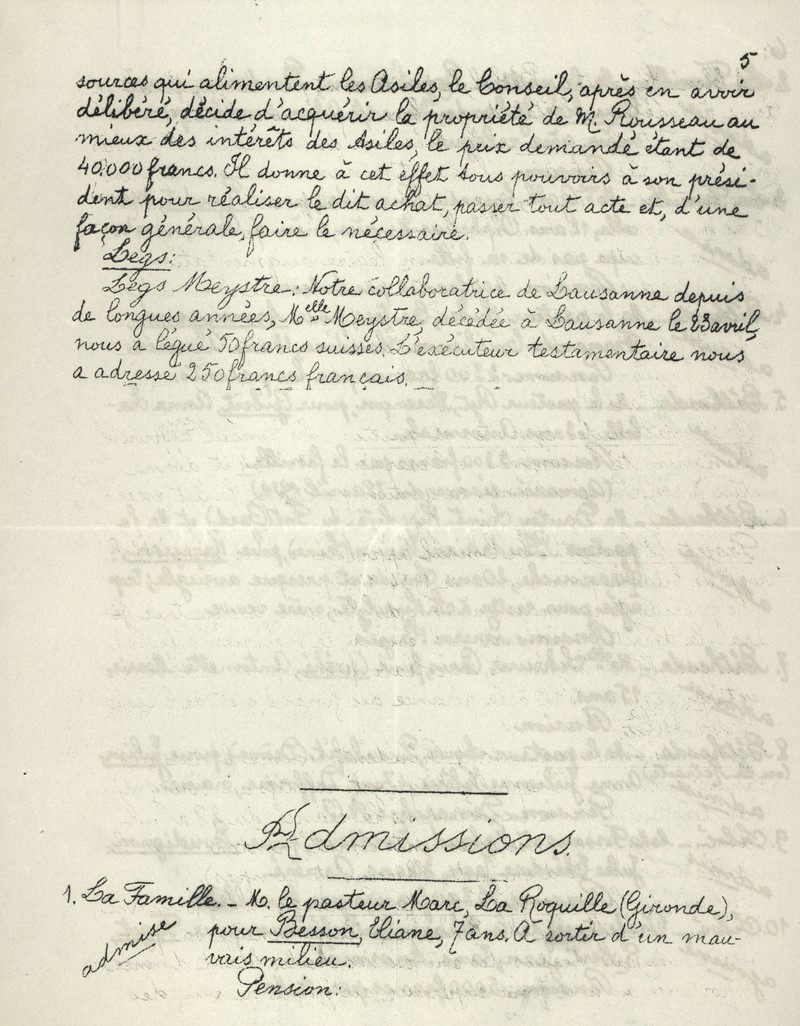 5
sources qui alimentent les Asiles, le Conseil, après en avoir
délibéré, décide d'acquérir la propriété de M. Rousseau au
mieux des intérêts des Asiles, le prix demandé étant de
40.000 francs. Il donne à cet effet tous pouvoirs à son prési-
dent pour réaliser le dit achat, passer tout acte et, d'une
façon générale, faire le nécessaire.
Legs:
Legs Meystre: Notre collaboratrice de Lausanne depuis
de longues années, Melle Meystre, décédée à Lausanne le 23 avril,
nous a légué 50 francs suisses. L'exécuteur testamentaire nous
a adressé 250 francs français.
Admissions.
1. La Famille. - M. le pasteur Marc, La Roquille (Gironde),
pour Besson, Eliane, 7 ans. À sortir d'un mau-
admise
vais milieu.
Pension: